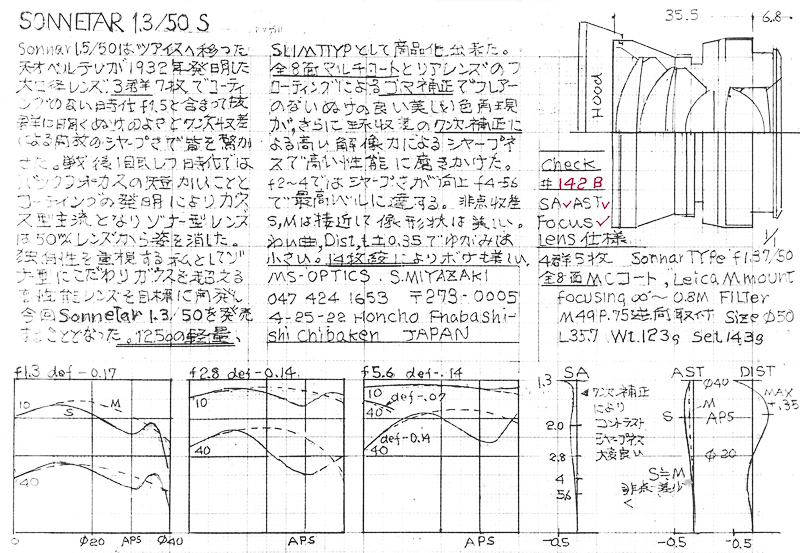 SONNETAR 1.3/50 S
Sonnar1.5/50はツアイスへ移った
天オベルテレが1932年発明した
大口径レンズ 3群7枚でコーティ
ングのない時代 f1.5と合まって抜
群に明くぬけのよさとワ次収差
による周放のシャープさで皆を驚か
せた。戦後1眼レフ時代では
バックフォーカスの短かいことと
コーティングの発明によりガウス
ズ型主流となりゾナー型レンズ
は50%レンズから姿を消した。
独自性を重視する私としてゾ
ナー型にこだわりガウスを超える
高性能レンズを目標に開発し
今回Sonnetar 1.3/50を発売
することとなった。125gの軽量、
SLIMTYPとして商品化出来た。
全8面マルチコートとリアレンズのフ
ローティングによるコマ補正でフレアー
のないぬけの良い美しい色再現
が、さらに球収差の7次補正に
よる高い解像力によるシャープさ
スで高い性能に磨きかけた。
f2~4ではシャープさが向上 f4-56
で最高レベルに達する。非点収差
S,Mは接近して像形状は美しい。
わい曲,Dist,±0.35でゆがみは
小さい。14枚絞によりボケも美しい,
MS-OPTICS. S.MIYAZAKI
047 424 1653 〒273-0005
4-25-22 Honcho Fnabashi-
shi Chibaken JAPAN
35.5
6.8
Hood
1/1
Check
#142B
SA✓AST✓
Focus✓
Lens仕様
4群5枚 SonnarTYPe f1.37/50
全8面MCコート,Leica Mmount
focusing ∞~0.8M FILTER
M49P.75逆向取付 Size Ø50
L35.7 Wt.123g Set.143g
f1.3 def-0.17
10
S
M
40
0
Ø20
APS
Ø40
f2.8 def-0.14
10
40
APS
f5.6 def-.14
10
def-.07
40
def-0.14
APS
SA
1.3
2.0
2.8
4
5.6
-0.5
◀7次補正
により
コントラスト
シャープネス
大変良い
AST
Ø40
M
S
APS
Ø20
S≒M
非点差少
く
-0.5
DIST
MAX
+.35
-0.5